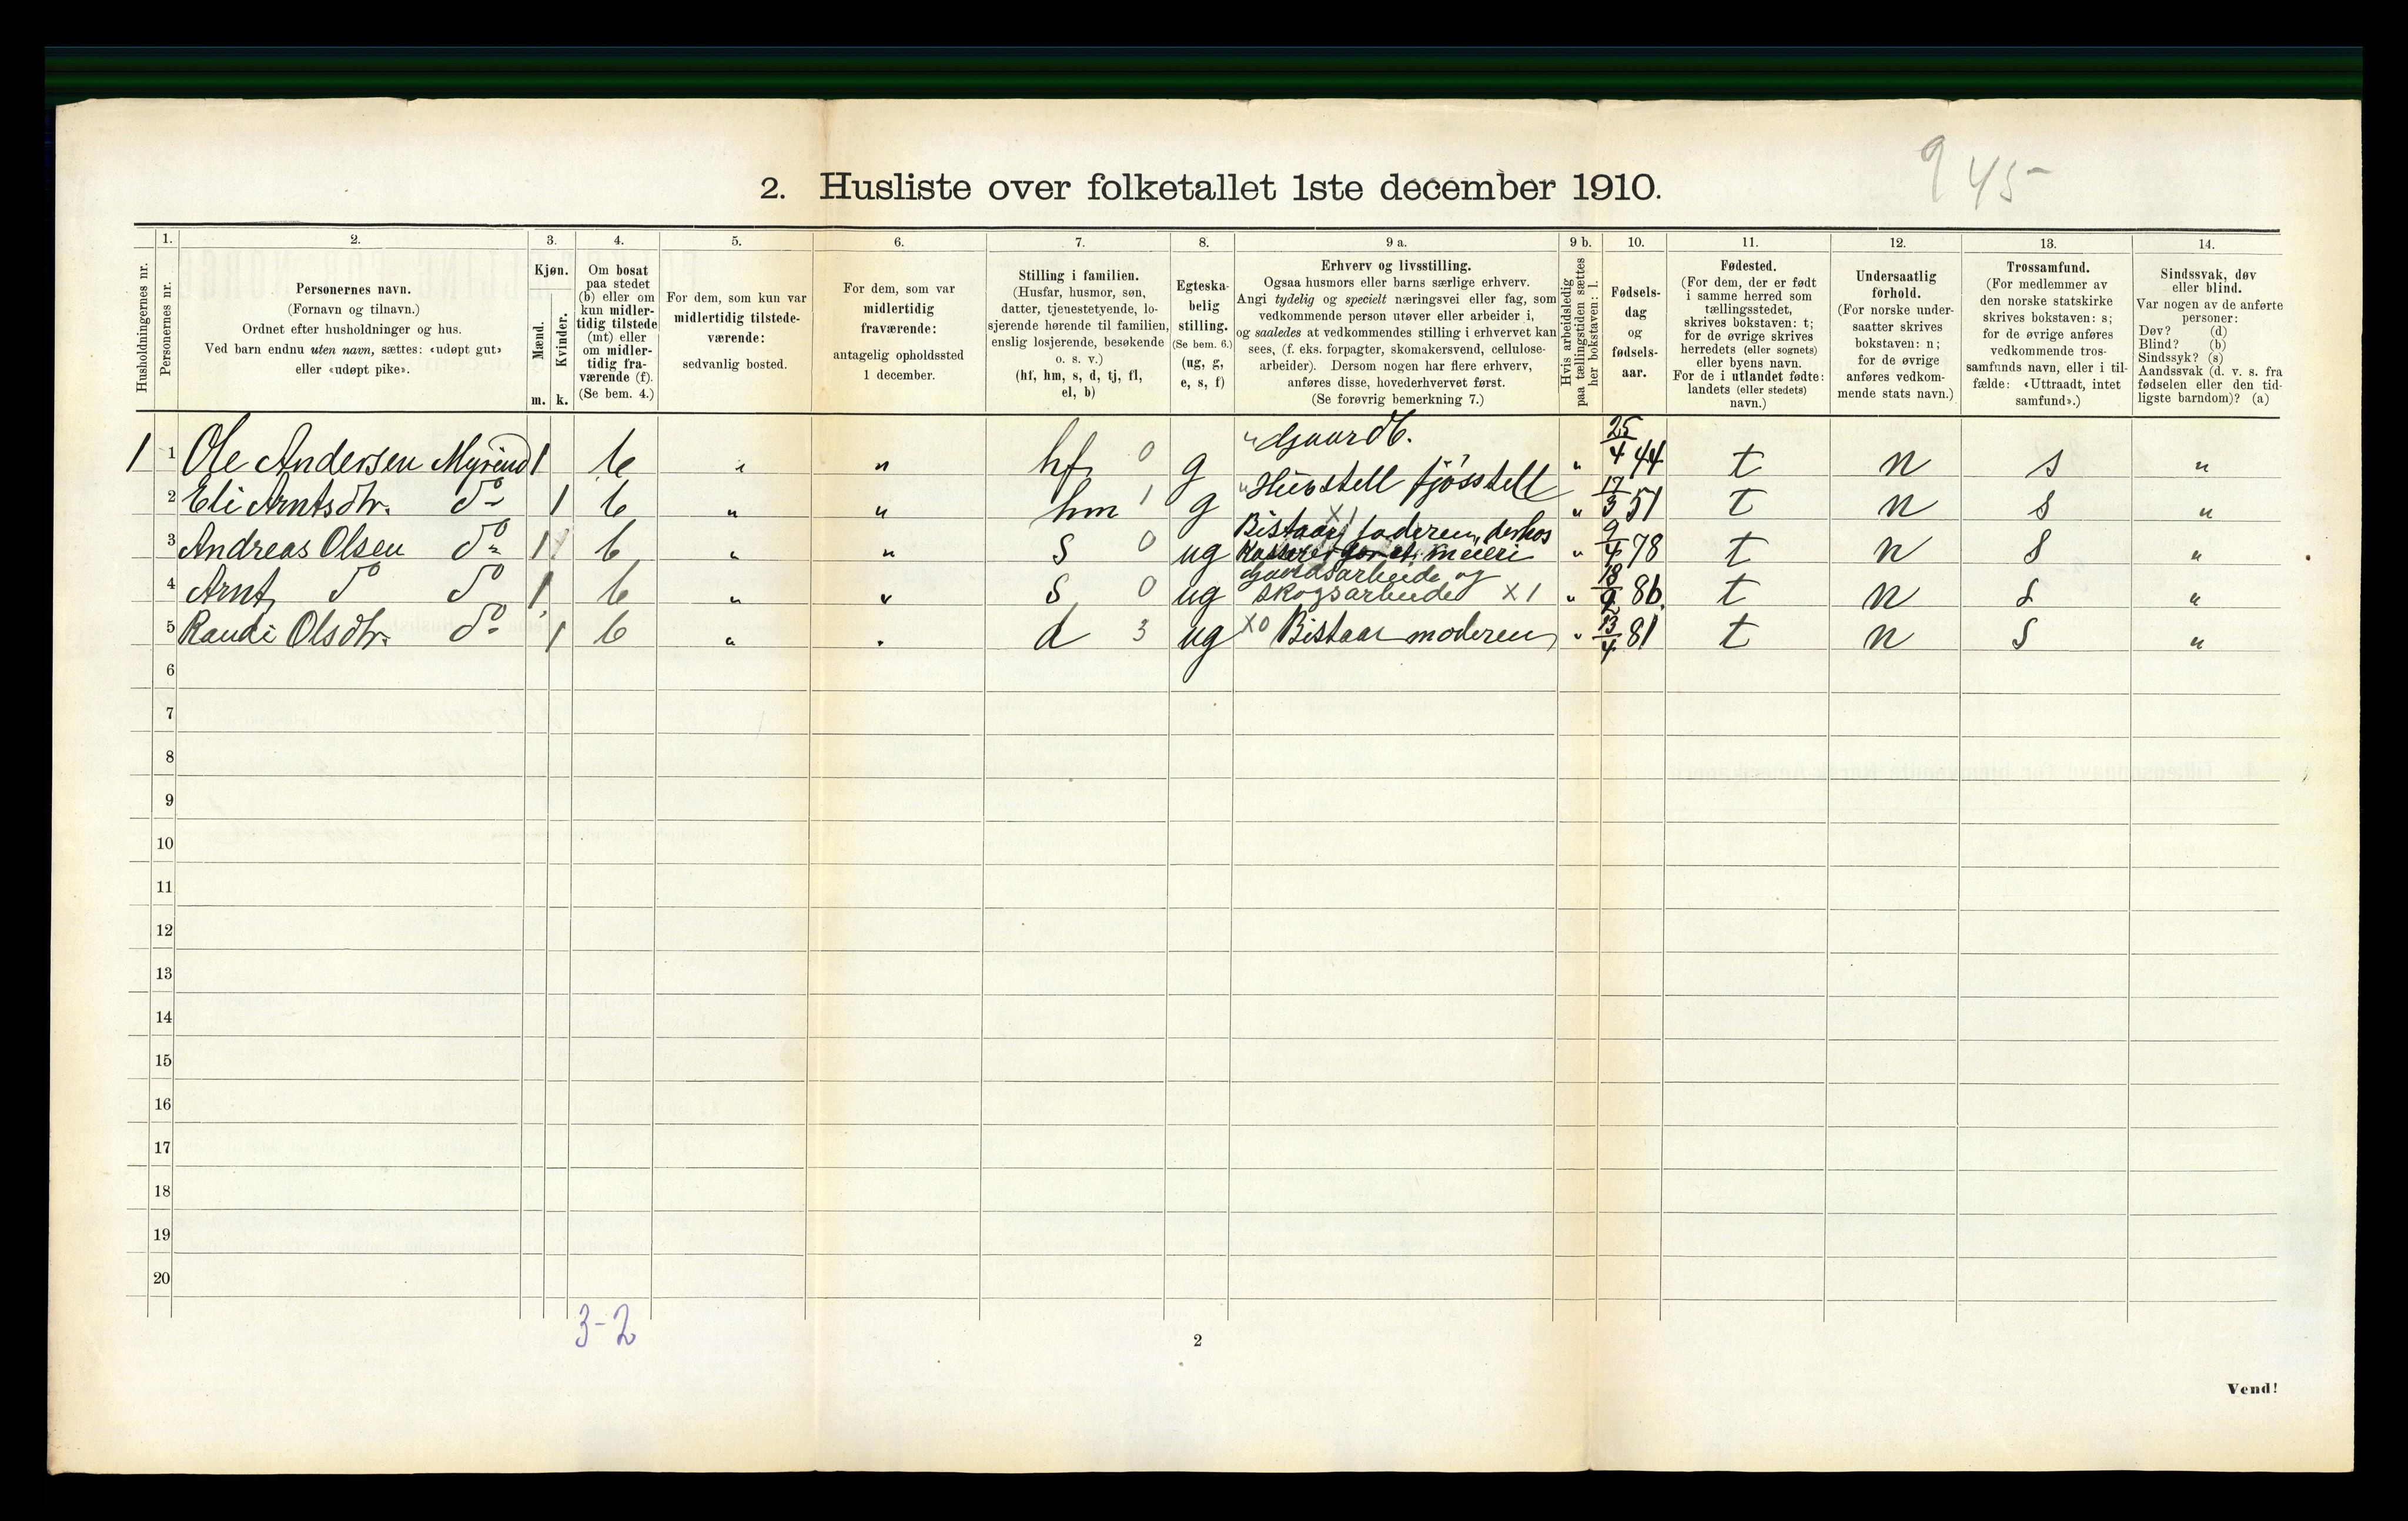 945
2. Husliste over folketallet 1ste december 1910.
Husholdningernes nr.
1. Personernes nr.
2. Personernes navn.
(Fornavn og tilnavn.)
Ordnet efter husholdninger og hus.
Ved barn endnu uten navn, sættes: «udøpt gut»
eller «udøpt pike».
3. Kjøn.
Mænd. m.
Kvinder. k.
4. Om bosat
paa stedet
(b) eller om
kun midler-
tidig tilstede
(mt) eller
om midler-
tidig fra-
værende (f).
(Se bem. 4.)
5. For dem, som kun var
midlertidig tilstede-
værende:
sedvanlig bosted.
6. For dem, som var
midlertidig
fraværende:
antagelig opholdssted
1 december.
7. Stilling i familien.
(Husfar, husmor, søn,
datter, tjenestetyende, lo-
sjerende hørende til familien,
enslig losjerende, besøkende
o. s. v.)
(hf, hm, s, d, tj, fl,
el, b)
8. Egteska-
belig
stilling.
(Se bem. 6.)
(ug, g,
e, s, f)
9 a. Erhverv og livsstilling.
Ogsaa husmors eller barns særlige erhverv.
Angi tydelig og specielt næringsvei eller fag, som
vedkommende person utøver eller arbeider i,
og saaledes at vedkommendes stilling i erhvervet kan
sees, (f. eks. forpagter, skomakersvend, cellulose-
arbeider). Dersom nogen har flere erhverv,
anføres disse, hovederhvervet først.
(Se forøvrig bemerkning 7.)
9 b. Hvis arbeidsledig
paa tællingstiden sættes
her bokstaven: l.
10. Fødsels-
dag
og
fødsels-
aar.
11. Fødested.
(For dem, der er født
i samme herred som
tællingsstedet,
skrives bokstaven: t;
for de øvrige skrives
herredets (eller sognets)
eller byens navn.
For de i utlandet fødte:
landets (eller stedets)
navn.)
12. Undersaatlig
forhold.
(For norske under-
saatter skrives
bokstaven: n;
for de øvrige
anføres vedkom-
mende stats navn.)
13. Trossamfund.
(For medlemmer av
den norske statskirke
skrives bokstaven: s;
for de øvrige anføres
vedkommende tros-
samfunds navn, eller i til-
fælde: «Uttraadt, intet
samfund».)
14. Sindssvak, døv
eller blind.
Var nogen av de anførte
personer:
Døv? (d)
Blind? (b)
Sindssyk? (s)
Aandssvak (d. v. s. fra
fødselen eller den tid-
ligste barndom)? (a)
1 1 Ole Andersen Myrend 1 b " " hf 0 g " Gaardb. " 25/4 44 t n s "
2 Eli Arntsdtr. do 1 b " " hm 1 g " Husstell fjøsstell " 17/3 51 t n s "
3 Andreas Olsen do 1 b " " s 0 ug Bistaar faderen, derhos X1
Kasserer for et meieri " 9/4 78 t n s "
4 Arnt do do 1 b " " s 0 ug Gaardsarbeide og
skogsarbeide X1 " 18/9 86 t n s "
5 Randi Olsdtr. do 1 b " " d 3 ug X0 Bistaar moderen " 13/4 81 t n s "
6
7
8
9
10
11
12
13
14
15
16
17
18
19
20
3-2
2
Vend!